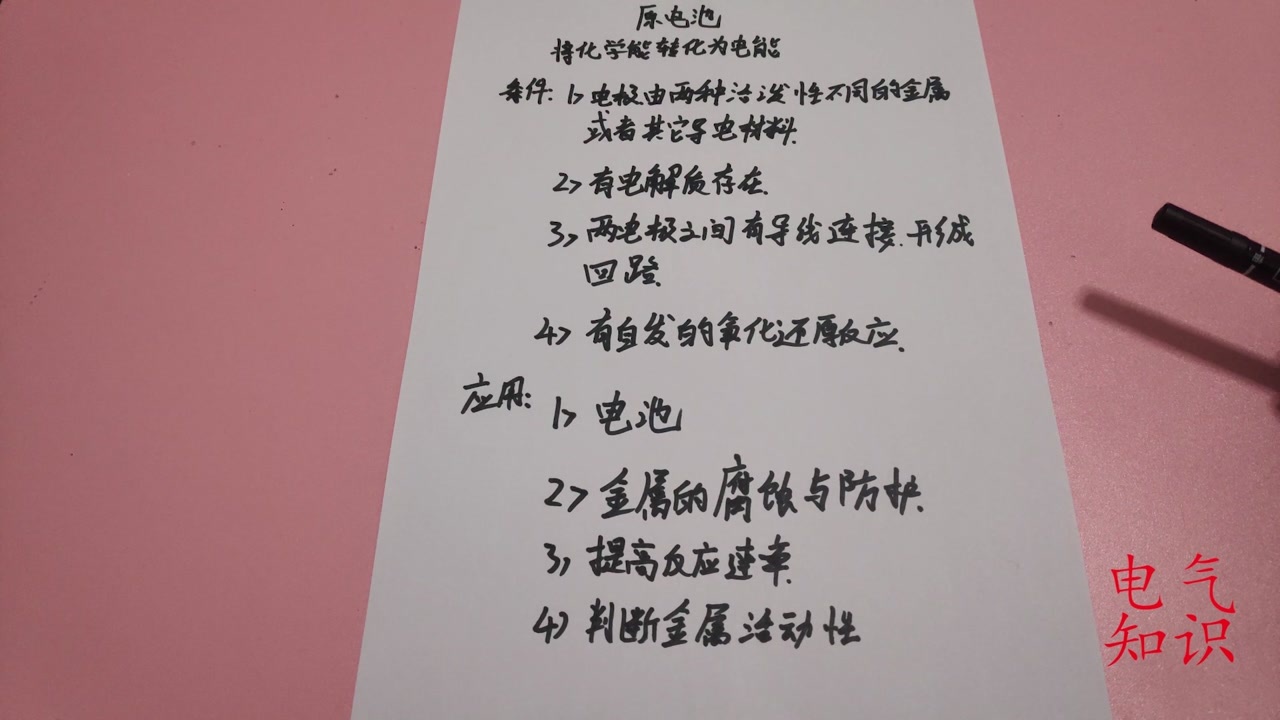 原电池
将化学能转化为电能
条件:1>电极由两种活泼性不同的金属
或者其它导电材料.
2>有电解质存在.
3>两电极之间有导线连接.形成
回路.
4>有自发的氧化还原反应.
应用:1>电池
2>金属的腐蚀与防护.
3>提高反应速率.
4>判断金属活动性
电气
知识